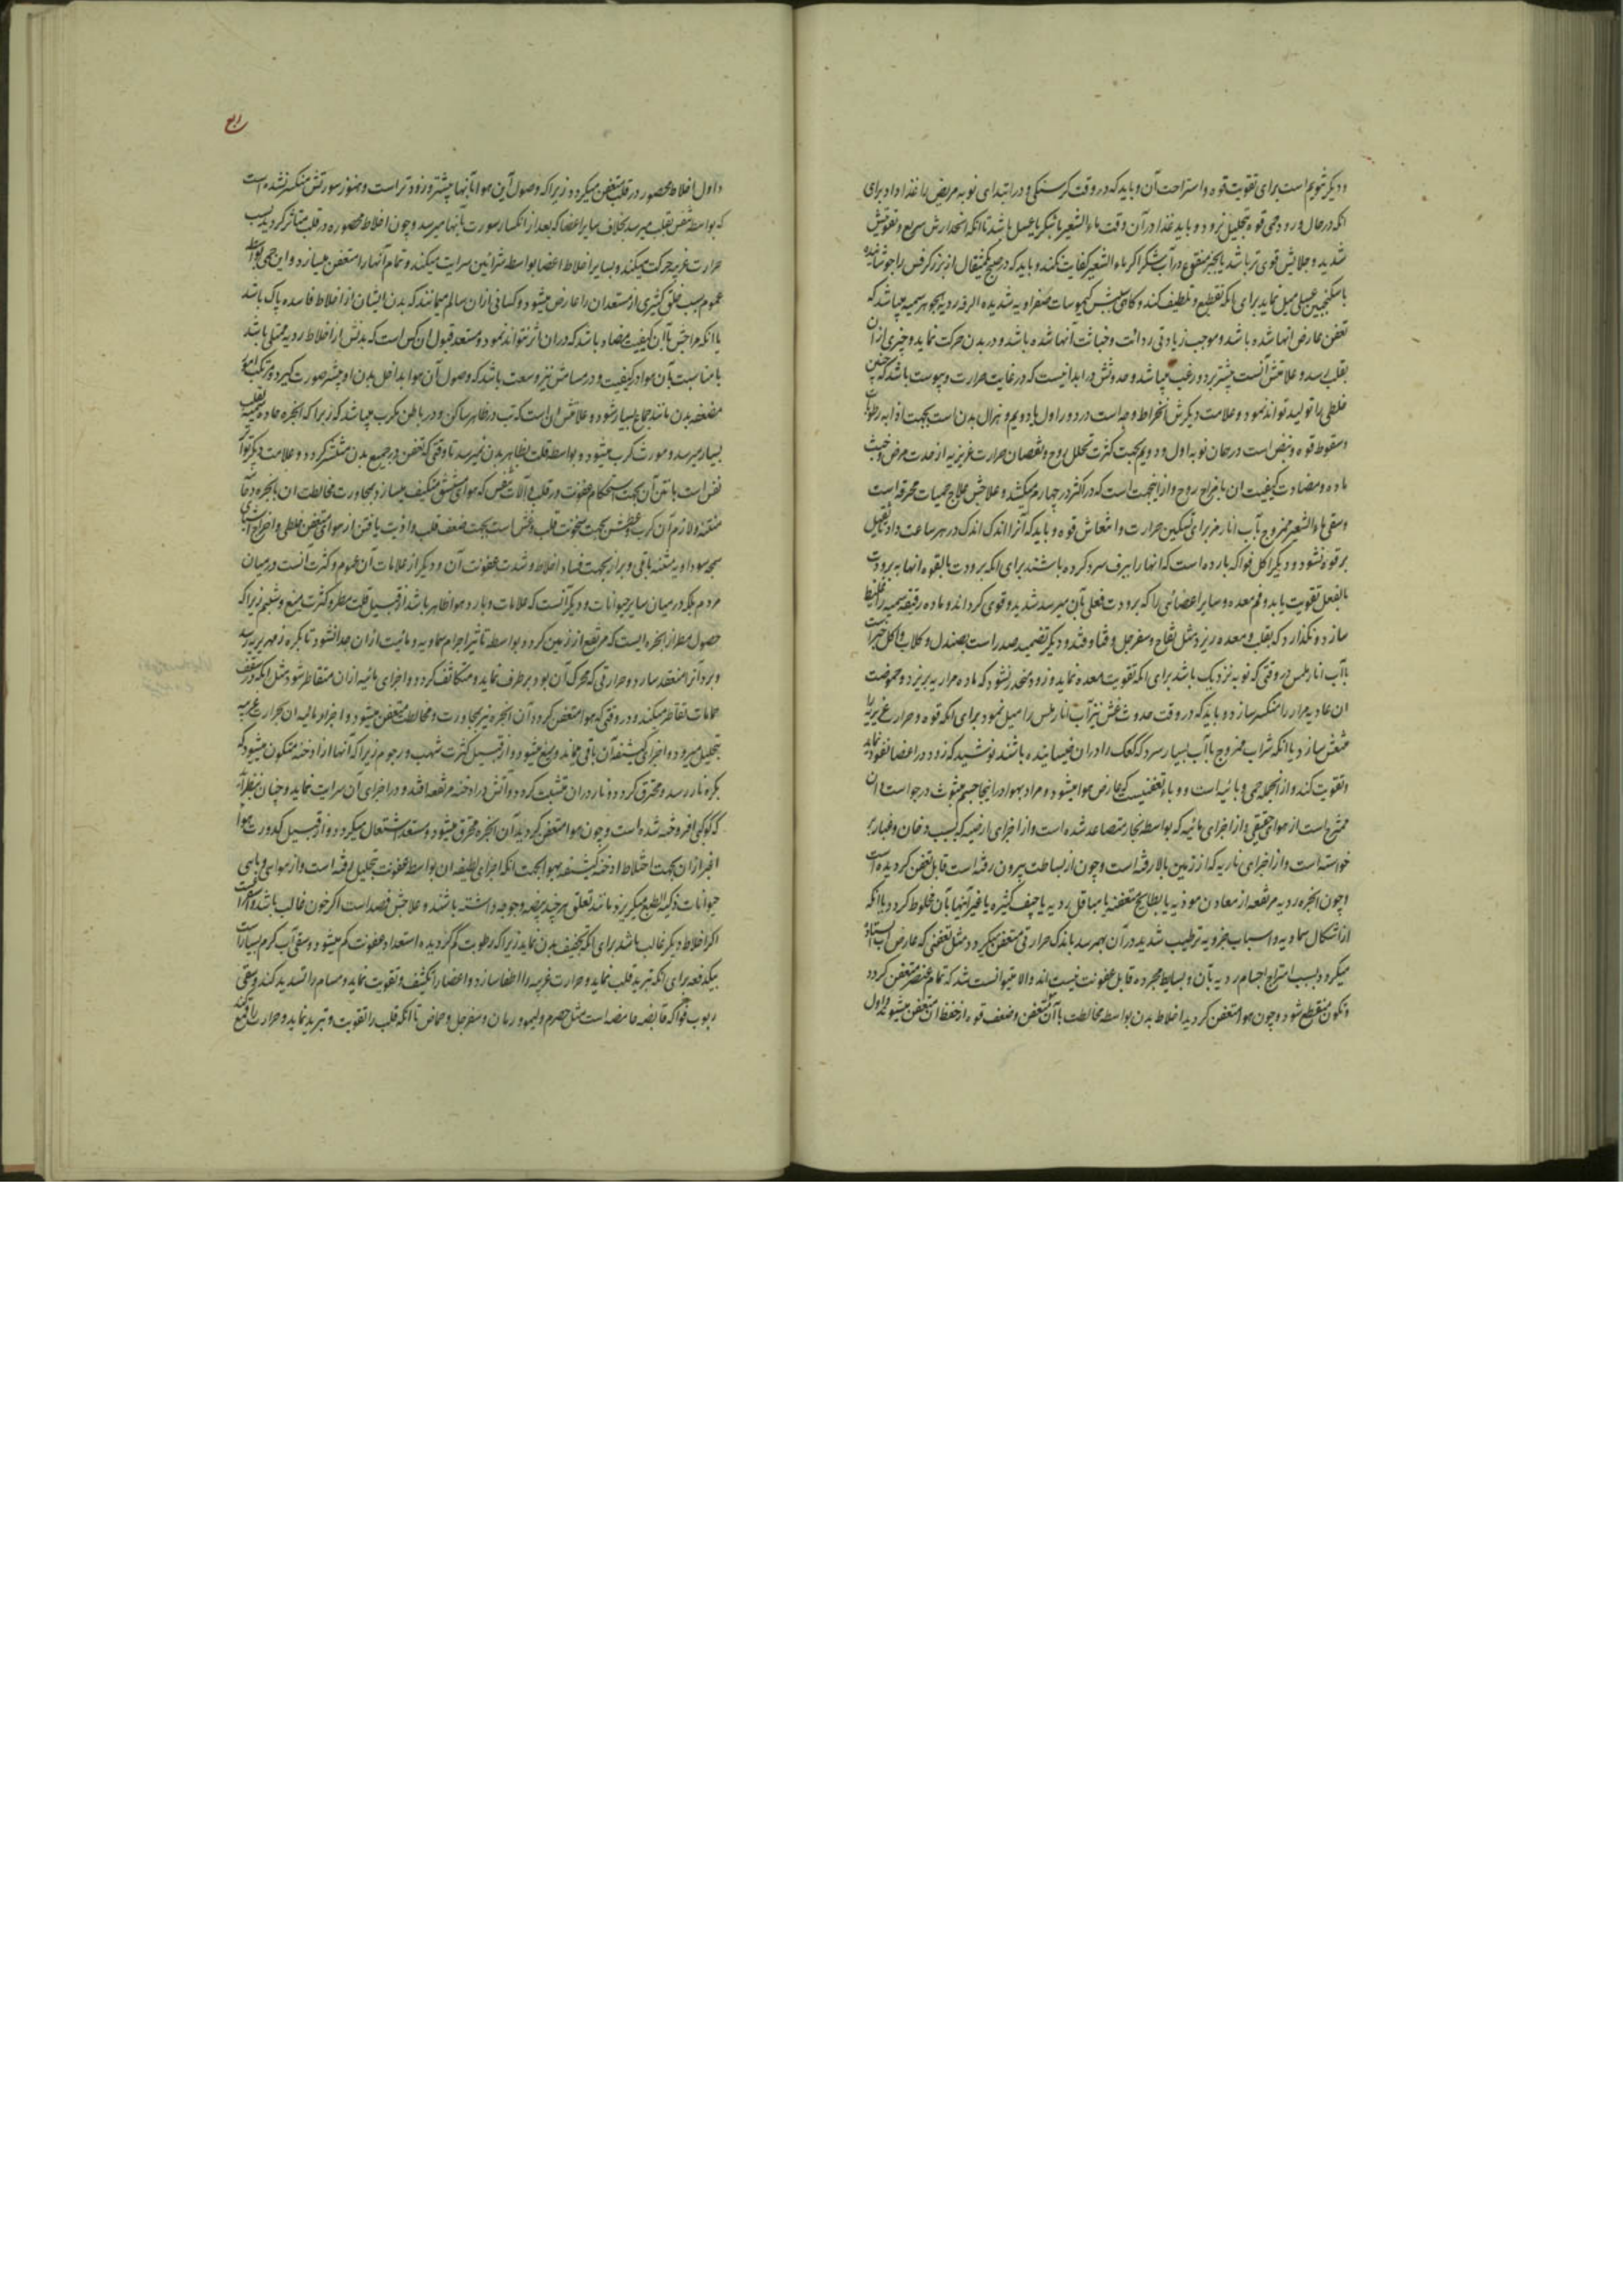 و دیگر تنویم است برای تقویت قوه و استراحت آن و باید که در وقت گرسنگی و در ابتدای نوبه مریض را غذا داد برای
انکه در حال ورود حمی قوه تحلیل نرود و باید غذا در آن وقت ماء الشعیر با شکر یا عسل باشد تا انکه انحدارش سریع و تقویتش
شدید و جلایش قوی تر باشد یا خبز منقوع در آب شکر اگر ماء الشعیر کفایت نکند و باید که در صبح یکمثقال از بزر کرفس را جوشانیده
با سکنجبین عسلی میل نماید برای انکه تقطیع و تلطیف کند و گاهی سببش کیموسات صفراویه شدیده الرداءة بجوهر سمیه میباشد که
تعفن عارض آنها شده باشد و موجب زیادتی ردائت و خباثت آنها شده باشد و در بدن حرکت نماید و چیزی از آن
بقلب رسد و علامتش آنست که بیشتر برد و رعب میباشد و حدوثش در ابدانیست که در غایت حرارت و یبوست باشد که چنین
خلطی را تولید تواند نمود و علامت دیگرش انخراط وجه است در دور اول یا دویم و هزال بدن است بجهت اذابه رطوبات
و سقوط قوه و نبض است در همان نوبه اول و دویم بجهت کثرت تحلل روح و نقصان حرارت غریزیه از حدت مرض و خبث
ماده و مضادت کیفیت ان با مزاج روح و از اینجهت است که در اکثر در چهارم میکشد و علاجش علاج حمیات محرقه است
و سقی ماء الشعیر ممزوج بآب انار مز برای تسکین حرارت و انتعاش قوه و باید که آنرا اندک اندک در هر ساعت داد تا ثقیل
بر قوه نشود و دیگر اکل فواکه بارده است که انها را ببرف سرد کرده باشند برای انکه برودت بالقوه انها به برودت
بالفعل تقویت یابد و فم معده و سایر اعضائی را که برودت فعلی بآن میرسد شدید و قوی گرداند و ماده رقیقه سمیه را غلیظ
سازد و نگذارد که بقلب و معده ریزد مثل تفاح و سفرجل و قثا و قثد و دیگر تضمید صدر است بصندل و گلاب و اکل خبز است
با آب انار ملس در وقتی که نوبه نزدیک باشد برای انکه تقویت معده نماید و زود منحدر نشود که ماده مراریه بریزد و حموضت
ان عادیه مرار را منکسر سازد و باید که در وقت حدوث غشی نیز آب انار ملس را میل نمود برای انکه قوه و حرارت غریزیه را
منتعش سازد یا انکه شراب ممزوج با آب بسیار سرد که کعک را در ان خیسانیده باشند نوشید که زود در اعضا نفوذ نماید
و تقویت کند و از انجمله حمی وبائیه است و وباء تعفنیست که عارض هوا میشود و مراد بهوا در اینجا جسم مبثوث در جو است ان
ممتزج است از هوای حقیقی و از اجزای مائیه که بواسطه بخار متصاعد شده است و از اجزای ارضیه که بسبب دخان و غبار بر
خواسته است و از اجزای ناریه که از زمین بالا رفته است و چون از بساطت بیرون رفته است قابل تعفن گردیده است
و چون ابخره ردیه مرتفعه از معادن موذیه یا بطایح متعفنه یا مباقل ردیه یا جیف کثیره یا غیر آنها بآن مخلوط گردد یا انکه
از اشکال سماویه و اسباب جزویه ترطیب شدید در آن بهم رسد باندک حرارتی متعفن میگردد مثل تعفنی که عارض آب ایستاده
میگردد بسبب امتزاج اجسام ردیه بآن و بسایط مجرده قابل عفونت نیست اند والا میتوانست شد که تمام عنصر متعفن گردد
و تکون منقطع شود و چون هوا متعفن گردید اخلاط بدن بواسطه مخالطت با آن متعفن و ضعف قوه از حفظ ان متعفن میشود و اول
و اول اخلاط محصور در قلب متعفن میگردد زیرا که وصول این هوا بآنها بیشتر و زودتر است و هنوز سورتش منکسر نشده است
که بواسطه تنفس بقلب میرسد بخلاف سایر اعضا که بعد از انکسار سورت بآنها میرسد و چون اخلاط محصوره در قلب متأثر گردید بسبب
حرارت غریبه حرکت میکنند و بسایر اخلاط اعضا بواسطه شرائین سرایت میکنند و تمام آنها را متعفن میسازد و این حمی بواسطه
عموم سبب خلق کثیری از مستعدان را عارض میشود و کسانی از ان سالم میمانند که بدن ایشان از اخلاط فاسده پاک باشد
یا انکه مزاجش با ان کیفیت مضاد باشد که در ان اثر نتواند نمود و مستعد قبول ان کس است که بدنش از اخلاط ردیه ممتلی باشد
یا مناسبت بآن مواد در کیفیت و در مسامش نیز وسعت باشد که وصول آن هوا بداخل بدن او بیشتر صورت گیرد و مرتکب امور
مضعفه بدن مانند جماع بسیار شود و علامتش ان است که تب در ظاهر ساکن و در باطن مکرب میباشد که زیرا که ابخره حاده سمیه بقلب
بسیار میرسد و مورث کرب میشود و بواسطه قلت بظاهر بدن نمیرسد تا وقتی که تعفن در جمیع بدن منتشر گردد و علامت دیگر تواتر
نفس است با نتن آن بجهت استحکام عفونت در قلب و آلات تنفس که هوای مستنشق متکیف میسازد بمجاورت و مخالطت ان با بخره دخانیه
منتنه و لازم آن کرب و عطش بجهت سخونت قلب و غشی است بجهت ضعف قلب و اذیت یافتن از هوای متعفن خلطی و اخراج اشیای
سمجه سوداویه منتنه بقی و براز بجهت فساد اخلاط و شدت عفونت آن و دیگر از علامات آن عموم و کثرت انست در میان
مردم بلکه در میان سایر حیوانات و دیگر آنست که علامات وبا در هوا ظاهر باشد از قبیل قلت مطر و کثرت میغ و شبنم زیرا که
حصول مطر از ابخره ایست که مرتفع از زمین گردد بواسطه تأثیر اجرام سماویه و مائیت از ان جدا نشود تا بکره زمهریر رسد
و برد آنرا منعقد سازد و حرارتی که محرک آن بود برطرف نماید و متکاثف گردد و اجزای مائیه از ان متقاطر شود مثل انکه در سقف
حمامات تقاطر میکند و در وقتی که هوا متعفن گردد آن ابخره نیز بمجاورت و مخالطت متعفن میشود و اجزاء مائیه ان بحرارت غریبه
بتحلیل میرود و اجزای کثیفه آن باقی میماند و میغ میشود و از قبیل کثرت شهب و رجوم زیرا که آنها از ادخنه متکون میشود که
بکره نار رسد و محترق گردد و نار در ان متشبث گردد و آتش در ادخنه مرتفعه افتد و در اجزای آن سرایت نماید و چنان بنظر آید
که کوکبی افروخته شده است و چون هوا متعفن گردید آن ابخره محترق میشود و مستعد اشتعال میگردد و از قبیل کدورت هوا
اغبر ازان بجهت اختلاط ادخنه کثیفه بهوا بجهت انکه اجزای لطیفه ان بواسطه عفونت بتحلیل رفته است و از هوای وبائی
حیوانات ذکیة الطبع میگریزند مانند لقلق هر چند بیضه و جوجه داشته باشند و علاجش فصد است اگر خون غالب باشد و اسهال است
اگر اخلاط دیگر غالب باشد برای انکه تجفیف بدن نماید زیرا که رطوبت کم گردیده استعداد عفونت کم میشود و سقی آب گرم بسیار است
بیکدفعه برای انکه تبرید قلب نماید و حرارت غریبه را اطفا سازد و اعضا را تکثیف و تقویت نماید و مسام را تسدید کند و سقی
ربوب فواکه قابضه حامضه است مثل حصرم و لیمو و رمان و سفرجل و حماض تا انکه قلب را تقویت و تبرید نماید و حرارت را قمع کند